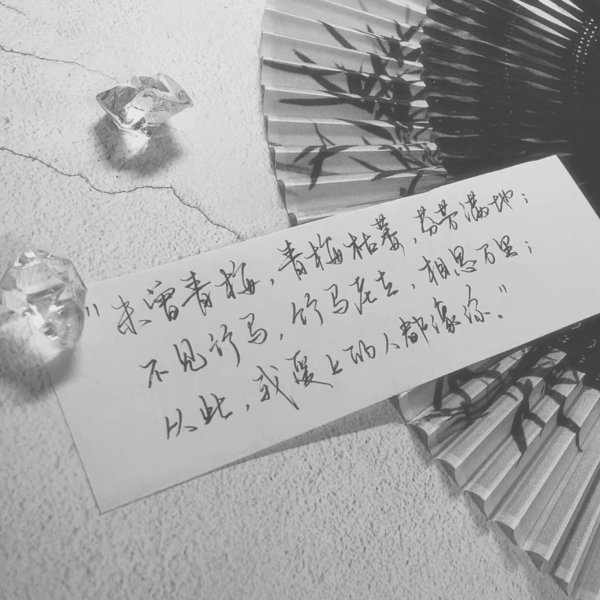 "未曾青梅，青梅枯萎，芬芳满地；
不见竹马，竹马老去，相思万里；
从此，我爱上的人都像你。"